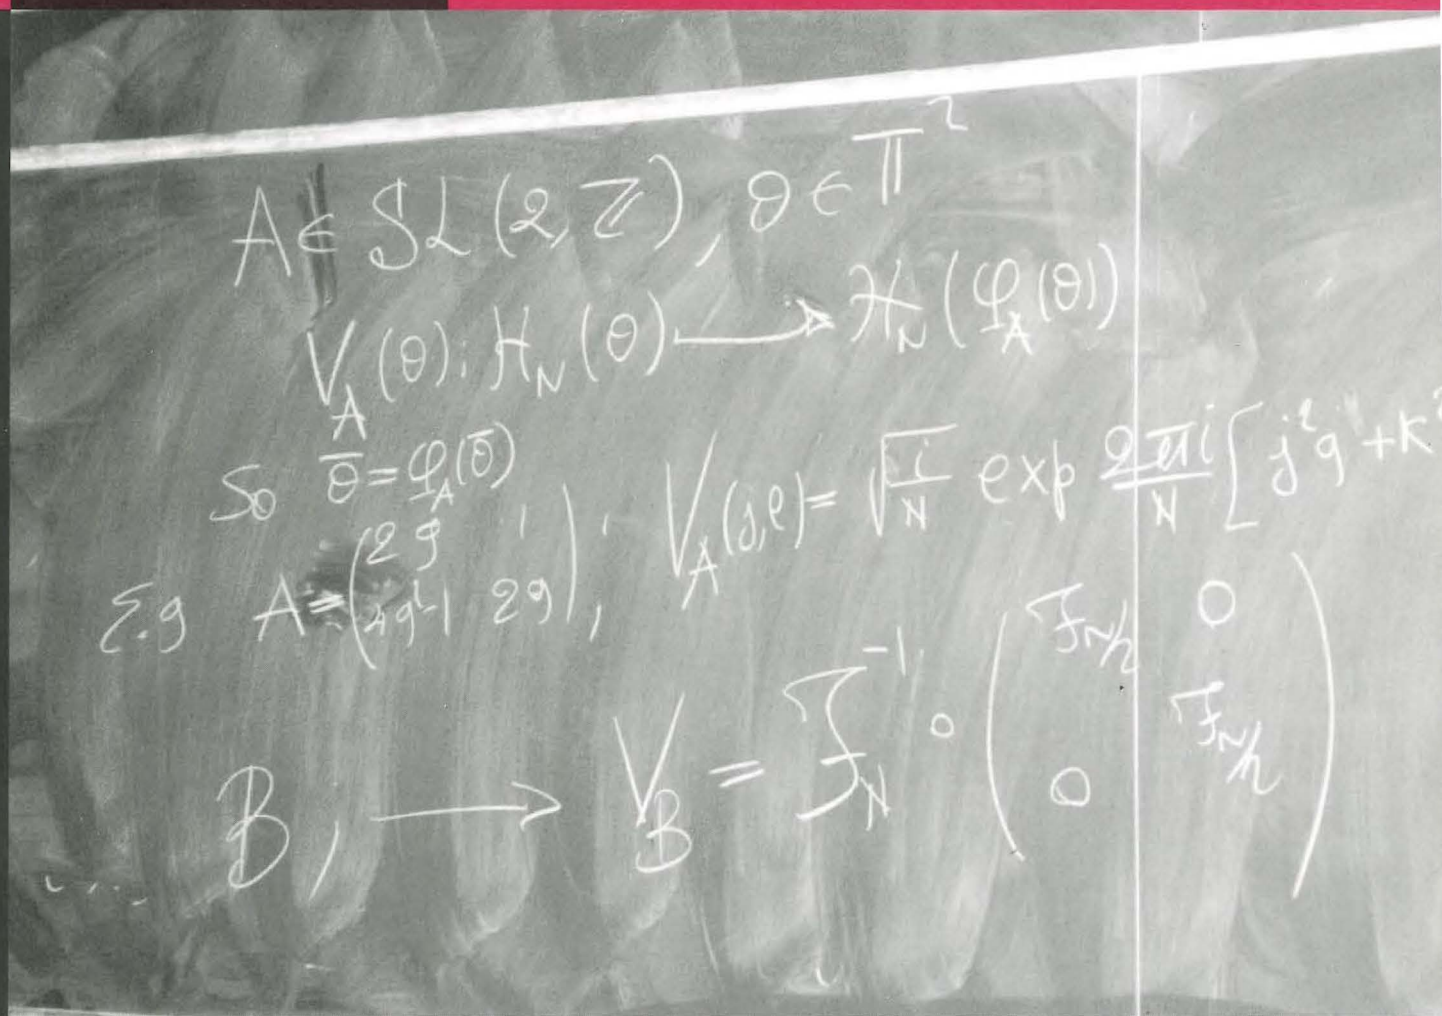 A ∈ SL(2,ℤ), θ ∈ 𝕋²
V_A(θ): H_N(θ) ⟶ H_N(φ_A(θ))
So θ̄ = φ_A(θ̄)
E.g A = (2g 1 ; 4g²-1 2g), V_A(j,l) = √(i/N) exp 2πi/N [j²g + k²
B, ⟶ V_B = F_N⁻¹ ∘ (F_N/2 0 ; 0 F_N/2)